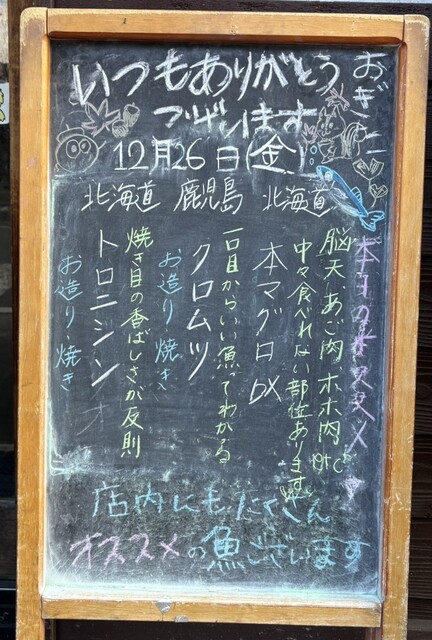 いつもありがとう
ございます
おぎに
12月26日(金)
本日のオススメ
北海道
脳天、あご肉、ホホ肉etc
中々食べれない部位あります
本マグロDX
鹿児島
一口目からいい魚ってわかる
クロムツ
お造り 焼き
北海道
焼き目の香ばしさが反則
トロニシン
お造り 焼き
店内にもたくさん
オススメの魚ございます